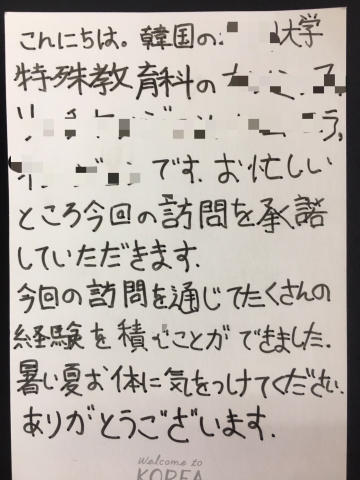 こんにちは。韓国の 大学
特殊教育科の
です、お忙しい
ところ今回の訪問を承諾
していただきます.
今回の訪問を通じてたくさんの
経験を積むことができました.
暑い夏お体に気をつけてください.
ありがとうございます.
Welcome to
KOREA